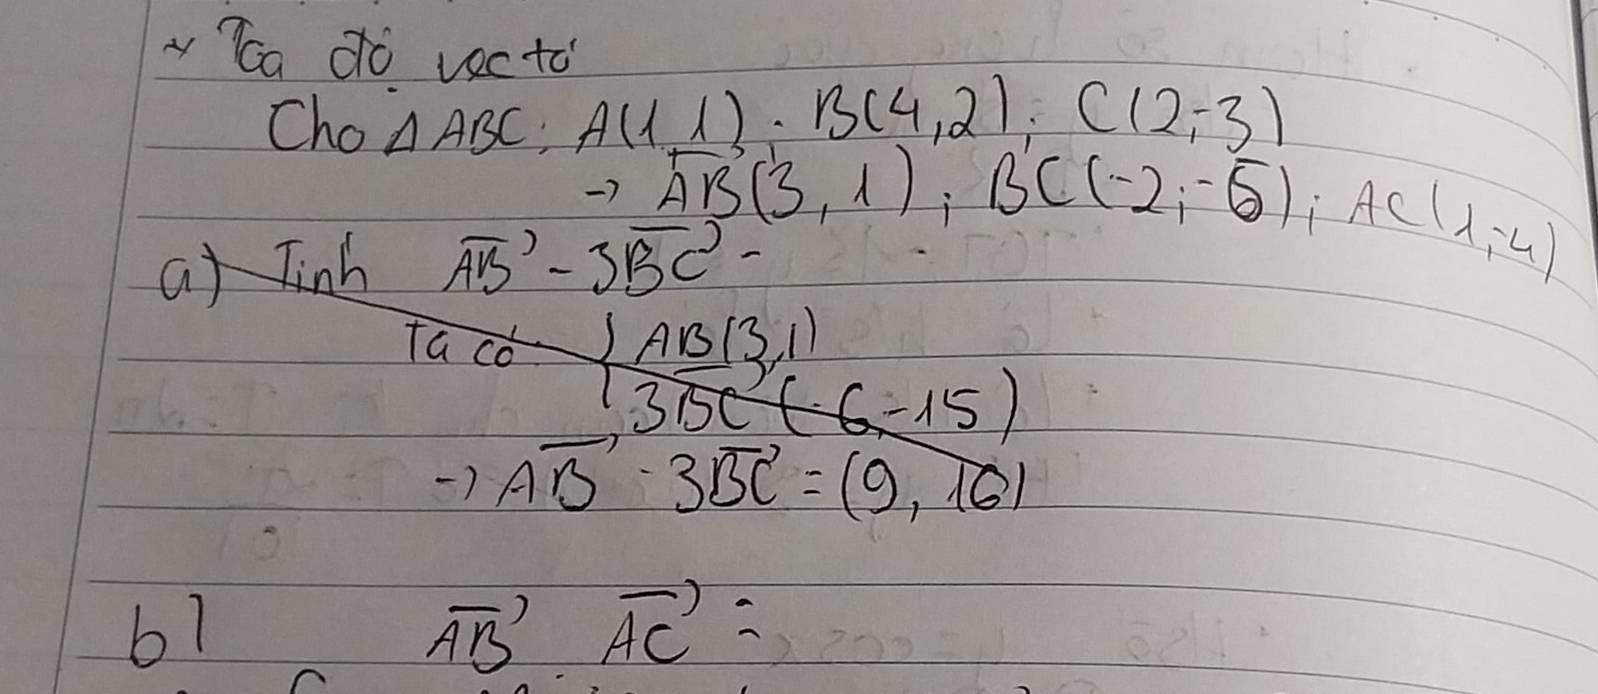 ~ Tọa độ vectơ
Cho Δ ABC: A(1,1). B(4,2); C(2;-3)
→ AB(3,1); BC(-2;-5); AC(1;-4)
a) Tính AB - 3BC -
Ta có { AB(3,1)
3BC(-6,-15)
→ AB - 3BC = (9, 16)
b) AB AC =